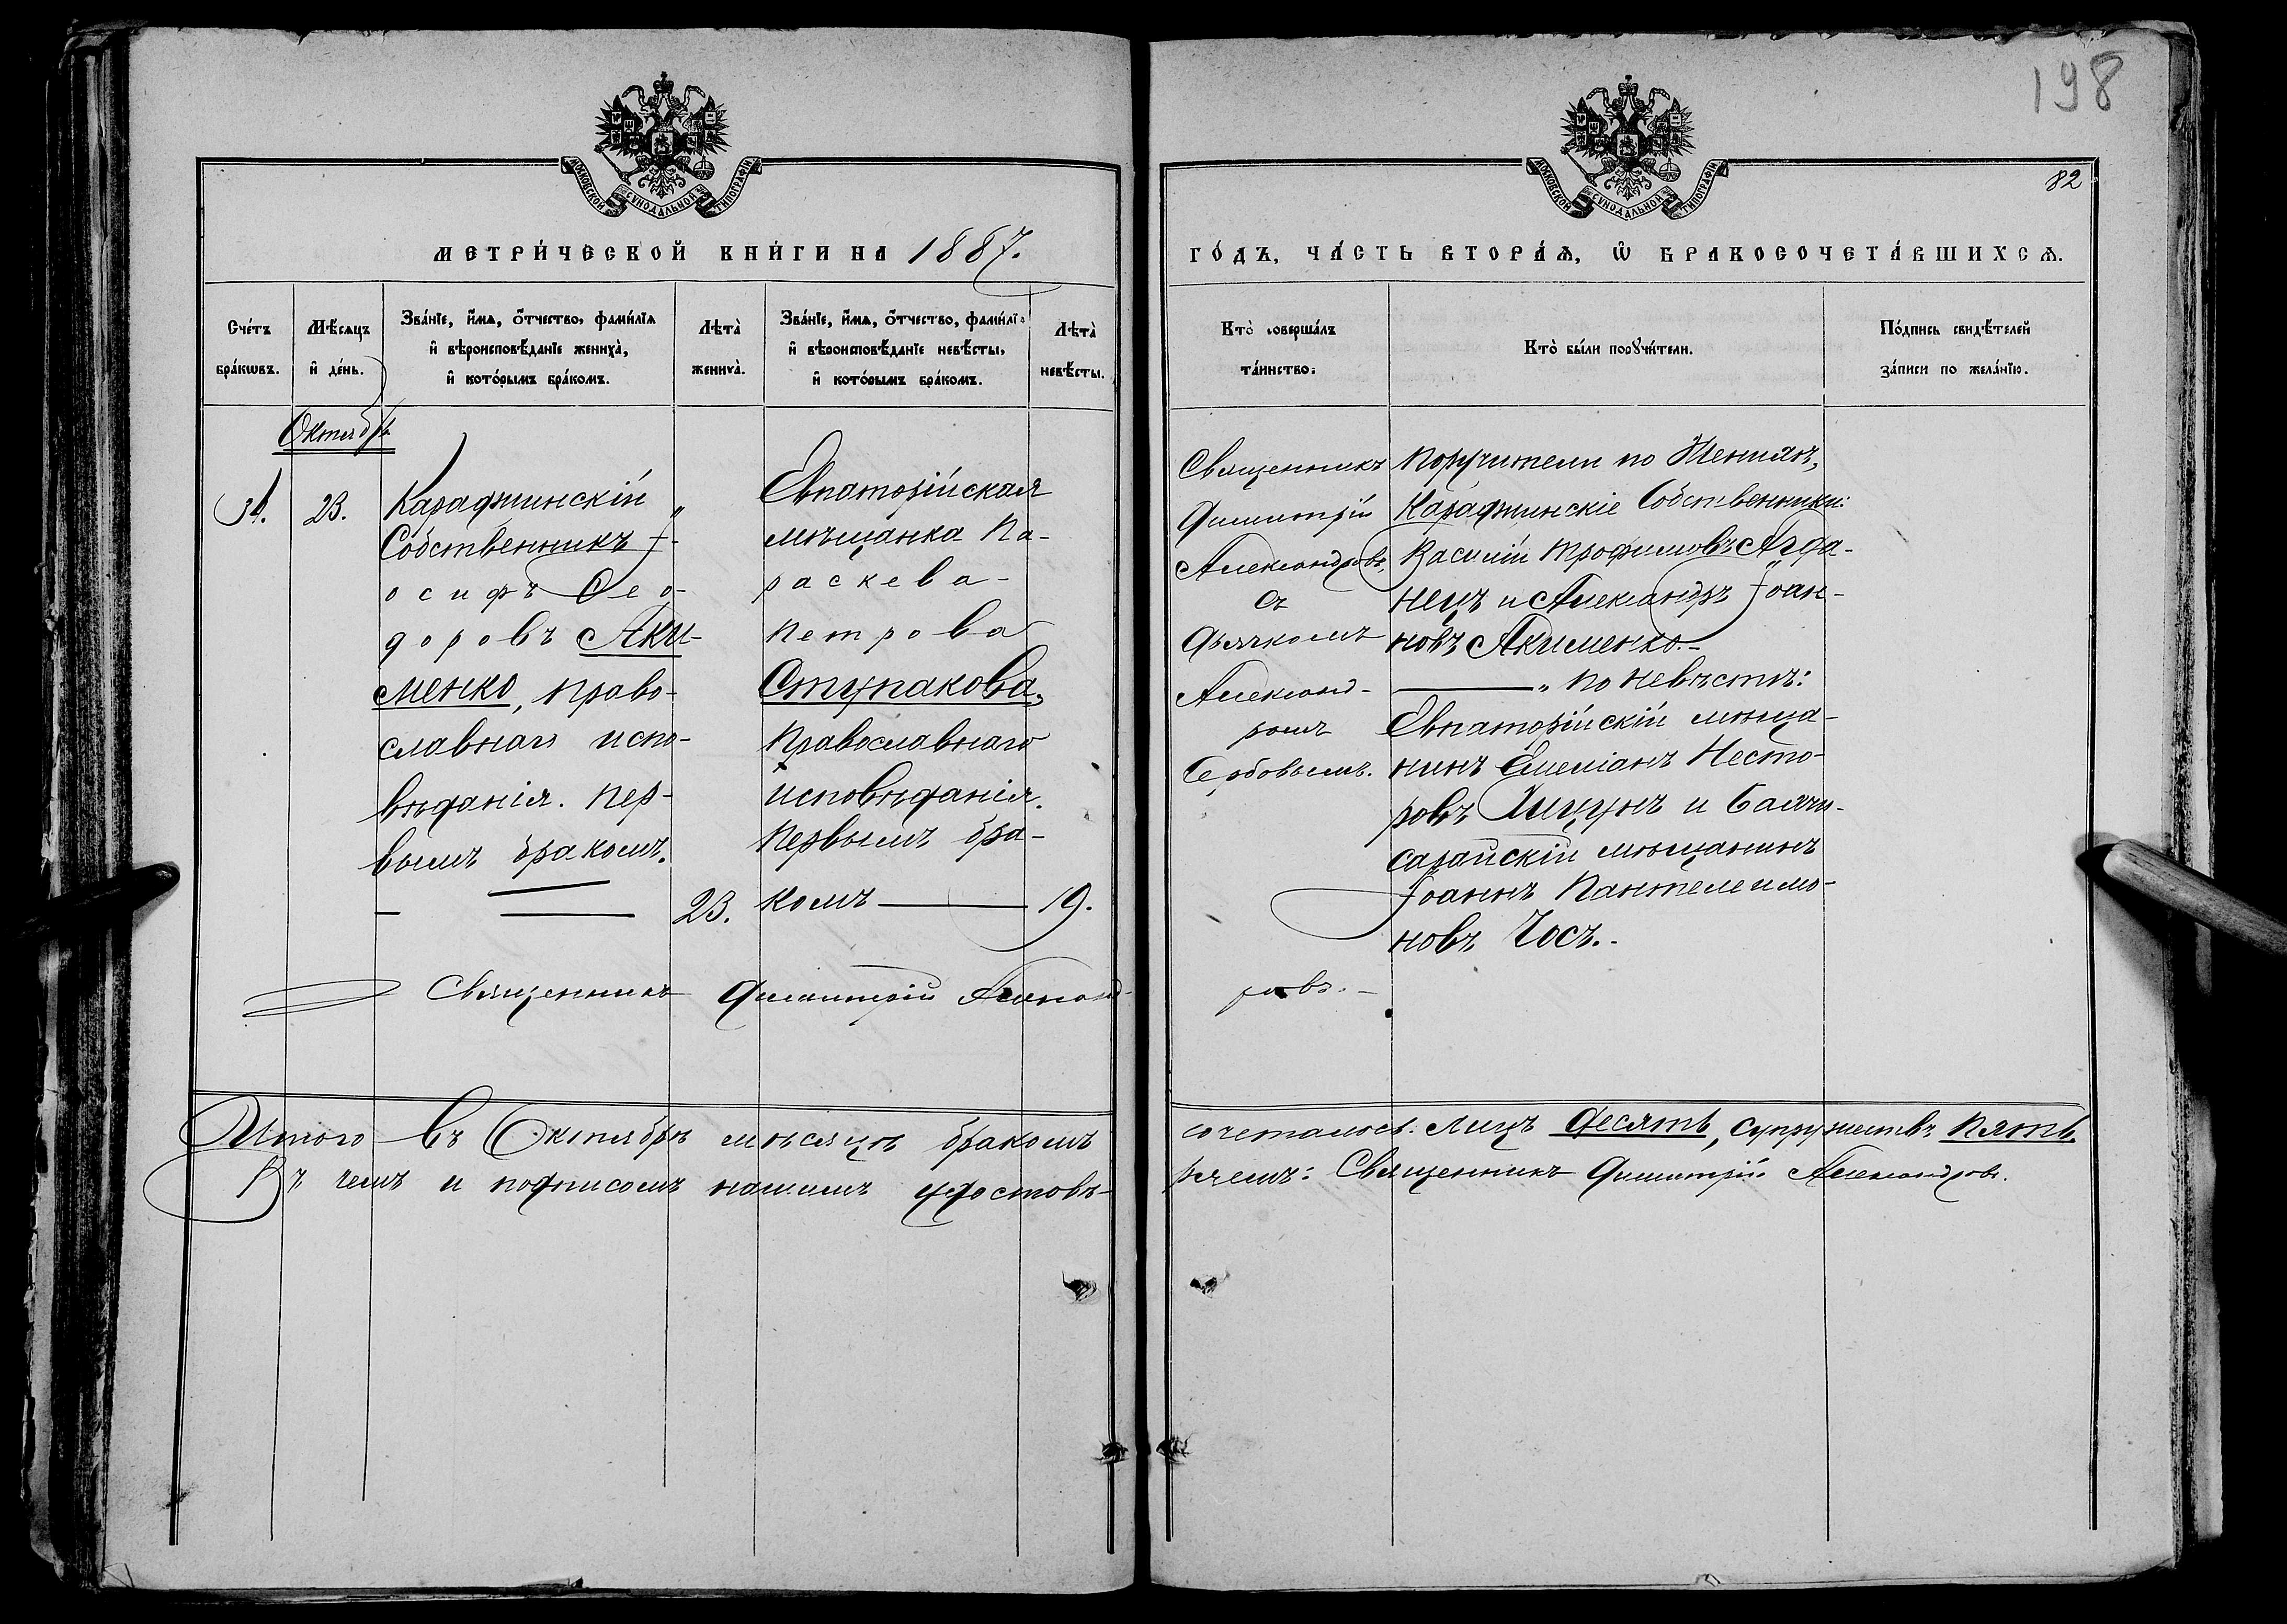 198
82
МОСКОВСКОЙ СѴНОДАЛЬНОЙ ТИПОГРАФІИ
МОСКОВСКОЙ СѴНОДАЛЬНОЙ ТИПОГРАФІИ
МЕТРИ́ЧЕСКОЙ КНИ́ГИ НА 1887.
ГО́ДЪ, ЧА́СТЬ ВТОРА́Ѧ, Ѡ҆ БРАКОСОЧЕТА́ВШИХСѦ.
Сче́тъ бра́кѡвъ.
Мѣ́сѧцъ и҆ де́нь.
Зва́нїе, и҆́мѧ, ѻ҆́тчество, фамѝлїѧ
и҆ вѣроисповѣ́данїе жениха̀,
и҆ кото́рымъ бра́комъ.
Лѣта̀ жениха̀.
Зва́нїе, и҆́мѧ, ѻ҆́тчество, фамѝлїѧ
и҆ вѣроисповѣ́данїе невѣ́сты,
и҆ кото́рымъ бра́комъ.
Лѣта̀ невѣ́сты.
Кто̀ соверша́лъ
та́инство.
Кто̀ бы́ли порꙋчи́тели.
По́дпись свидѣ́телей
за́писи по жела́нїю.
Октябрь
23.
Караджинскій
Собственникъ І-
осифъ Ѳео-
доровъ Аки-
менко, право-
славнаго испо-
вѣданія. Пер-
вымъ бракомъ.
23.
Евпаторійская
мѣщанка Па-
раскева
Петрова
Ступакова,
Православнаго
исповѣданія.
Первымъ бра-
комъ
19.
Священникъ
Димитрій
Александровъ,
съ
дьячкомъ
Александ-
ромъ
Сербовымъ.
Поручители по Женихѣ,
Караджинскіе Собственники:
Василій Трофимовъ Агда-
нецъ и Александръ Іоан-
новъ Акименко.-
" по Невѣстѣ:
Евпаторійскій мѣща-
нинъ Емеліанъ Несто-
ровъ и Бахчи-
сарайскій мѣщанинъ
Іоаннъ Пантелеимо-
новъ Чосъ.-
Священникъ Димитрій Александ-
ровъ.-
Итого въ Октябрѣ мѣсяцѣ бракомъ
сочеталось: лицъ десять, супружествъ пять.
Въ чемъ и подписомъ нашимъ удостовѣ-
ряемъ: Священникъ Димитрій Александровъ.